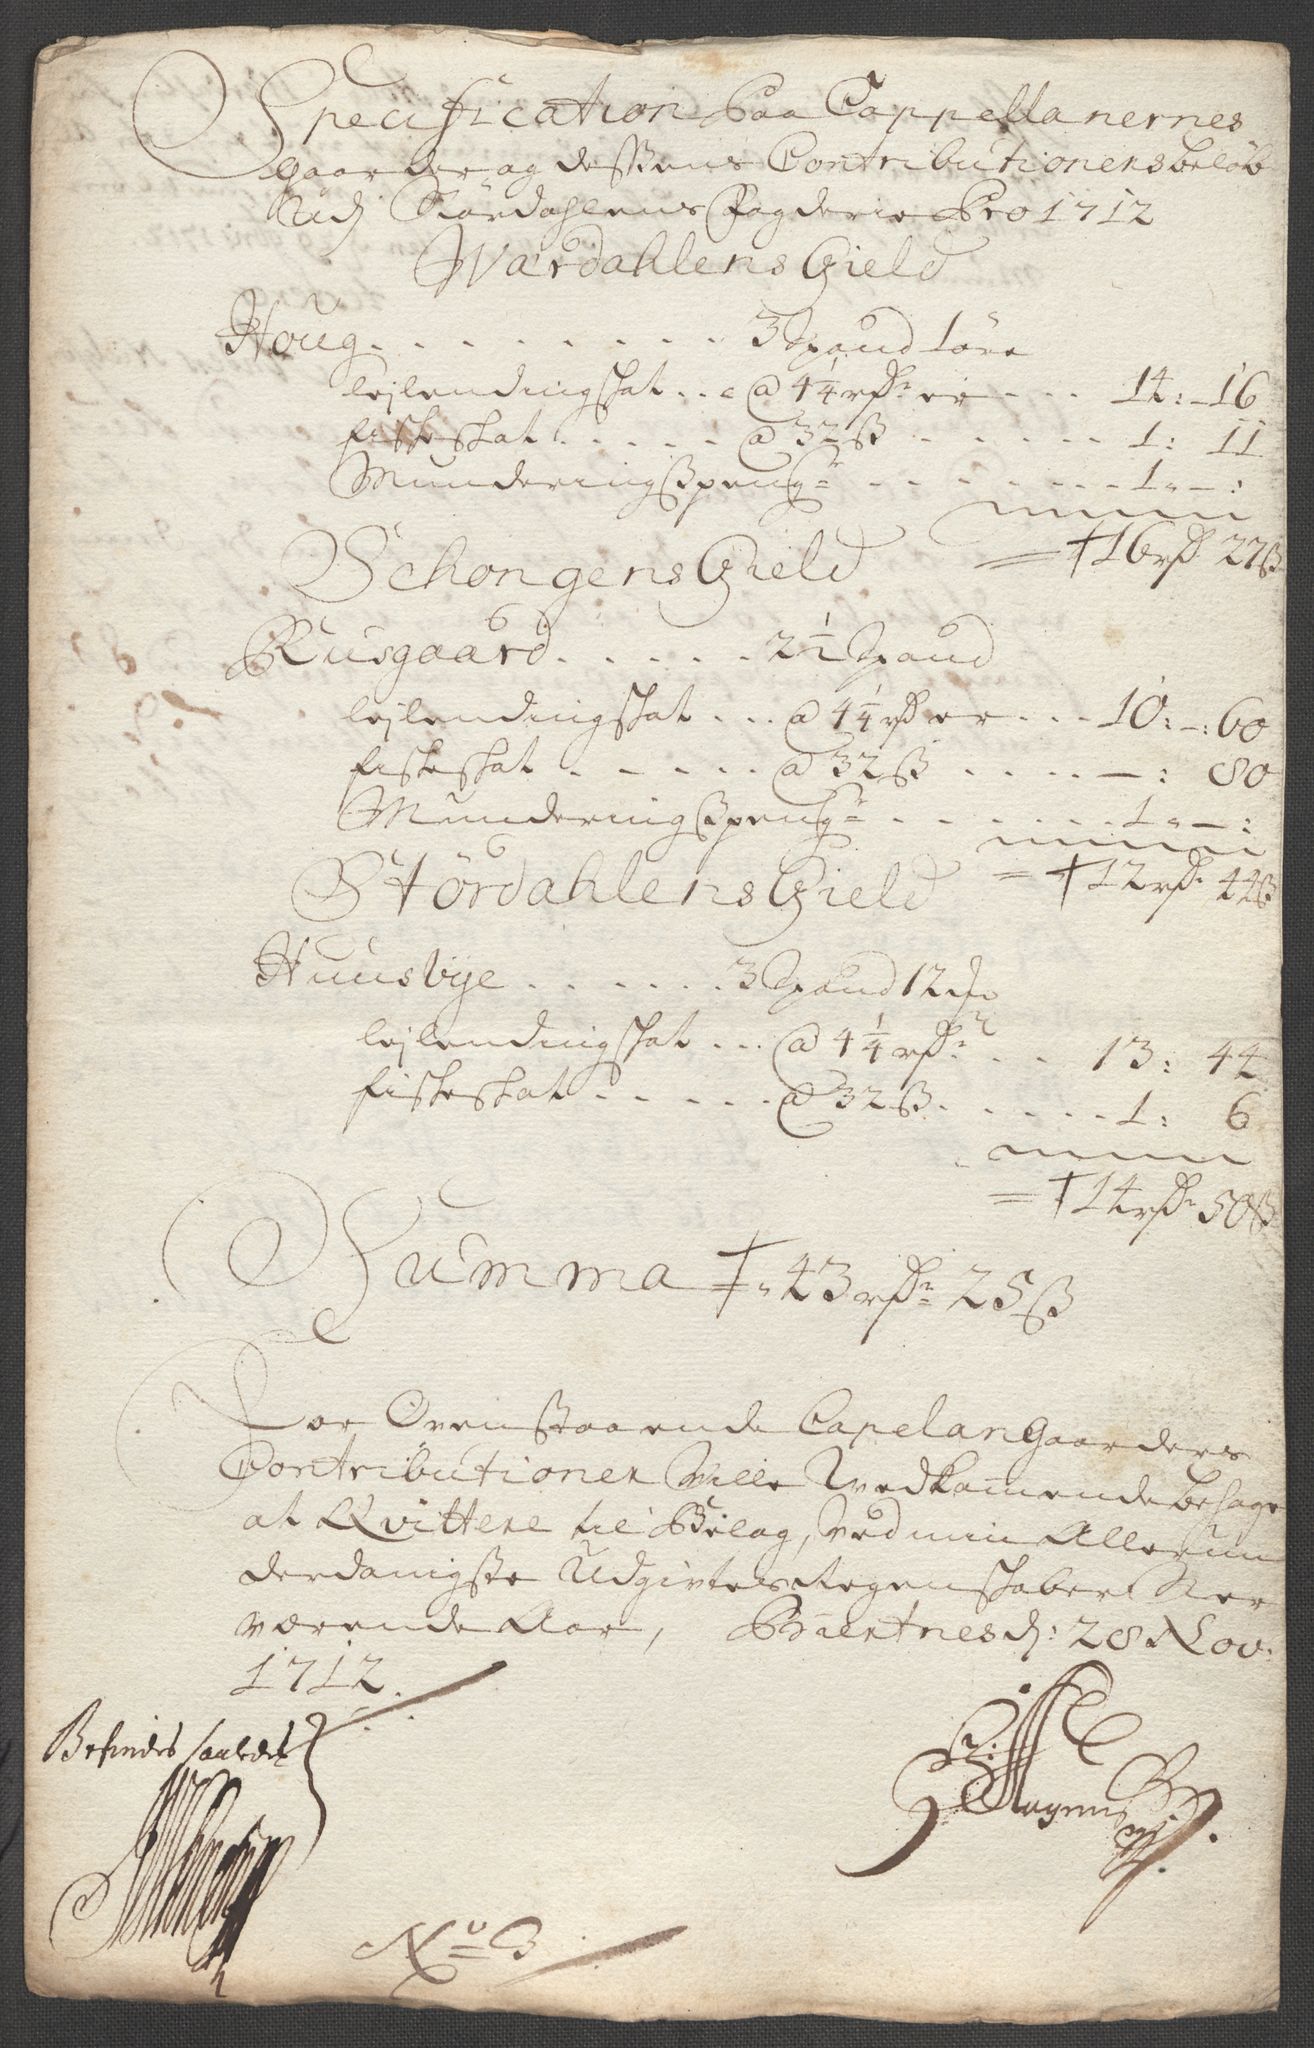 Specification Paa Cappellanernes
gaarder og dessens Contributioners beløb
Udj Størdahlens Fogderie Pro 1712
Wærdahlens Gield
Houg . . . . . . . . . 3 Spand 1 øre
leylendingskat . . . @ 4 1/4 rdr er . . . 14: - 16
fiskeskat . . . . . @ 32 ß . . . . . . 1: 11
Munderingspeng . . . . . . . 1 - :
= 16 rd 27 ß
Schongens Gield
Rusgaard . . . . . 2 1/2 Spand
leylendingskat . . . @ 4 1/4 rd er . . . 10: - : 60
fiskeskat . . . . . . @ 32 ß . . . . - : 80
Munderingspeng . . . . . . . 1 - :
= 12 rdr 44 ß
Størdahlens Gield
Huusbye . . . . . . 3 Spand 12
leylendingskat . . . @ 4 1/4 rdr . . 13: 44
fiskeskat . . . . . . @ 32 ß . . . . . . 1: 6
= 14 rdr 50 ß
Summa 43 rdr 25 ß
For Ovenstaaende Capelan Gaarders
Contributioner Ville Vedkommende behage
at Qvittere til Bilag, Ved min Allerun
derdanigste Udgivtes Regenskaber Nær
værende Aar, Biertnes d: 28 Nov:
1712
Befindes saaledes
No 3